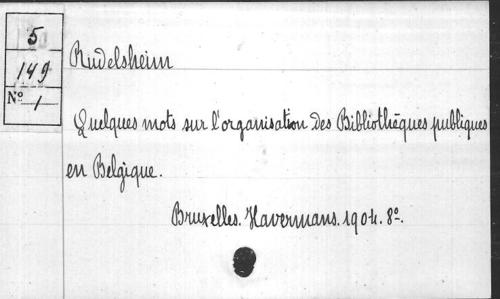 5
149
Nº 1
Rudelsheim
Quelques mots sur l'organisation des Bibliothèques publiques
en Belgique.
Bruxelles. Havermans. 1904. 8º.